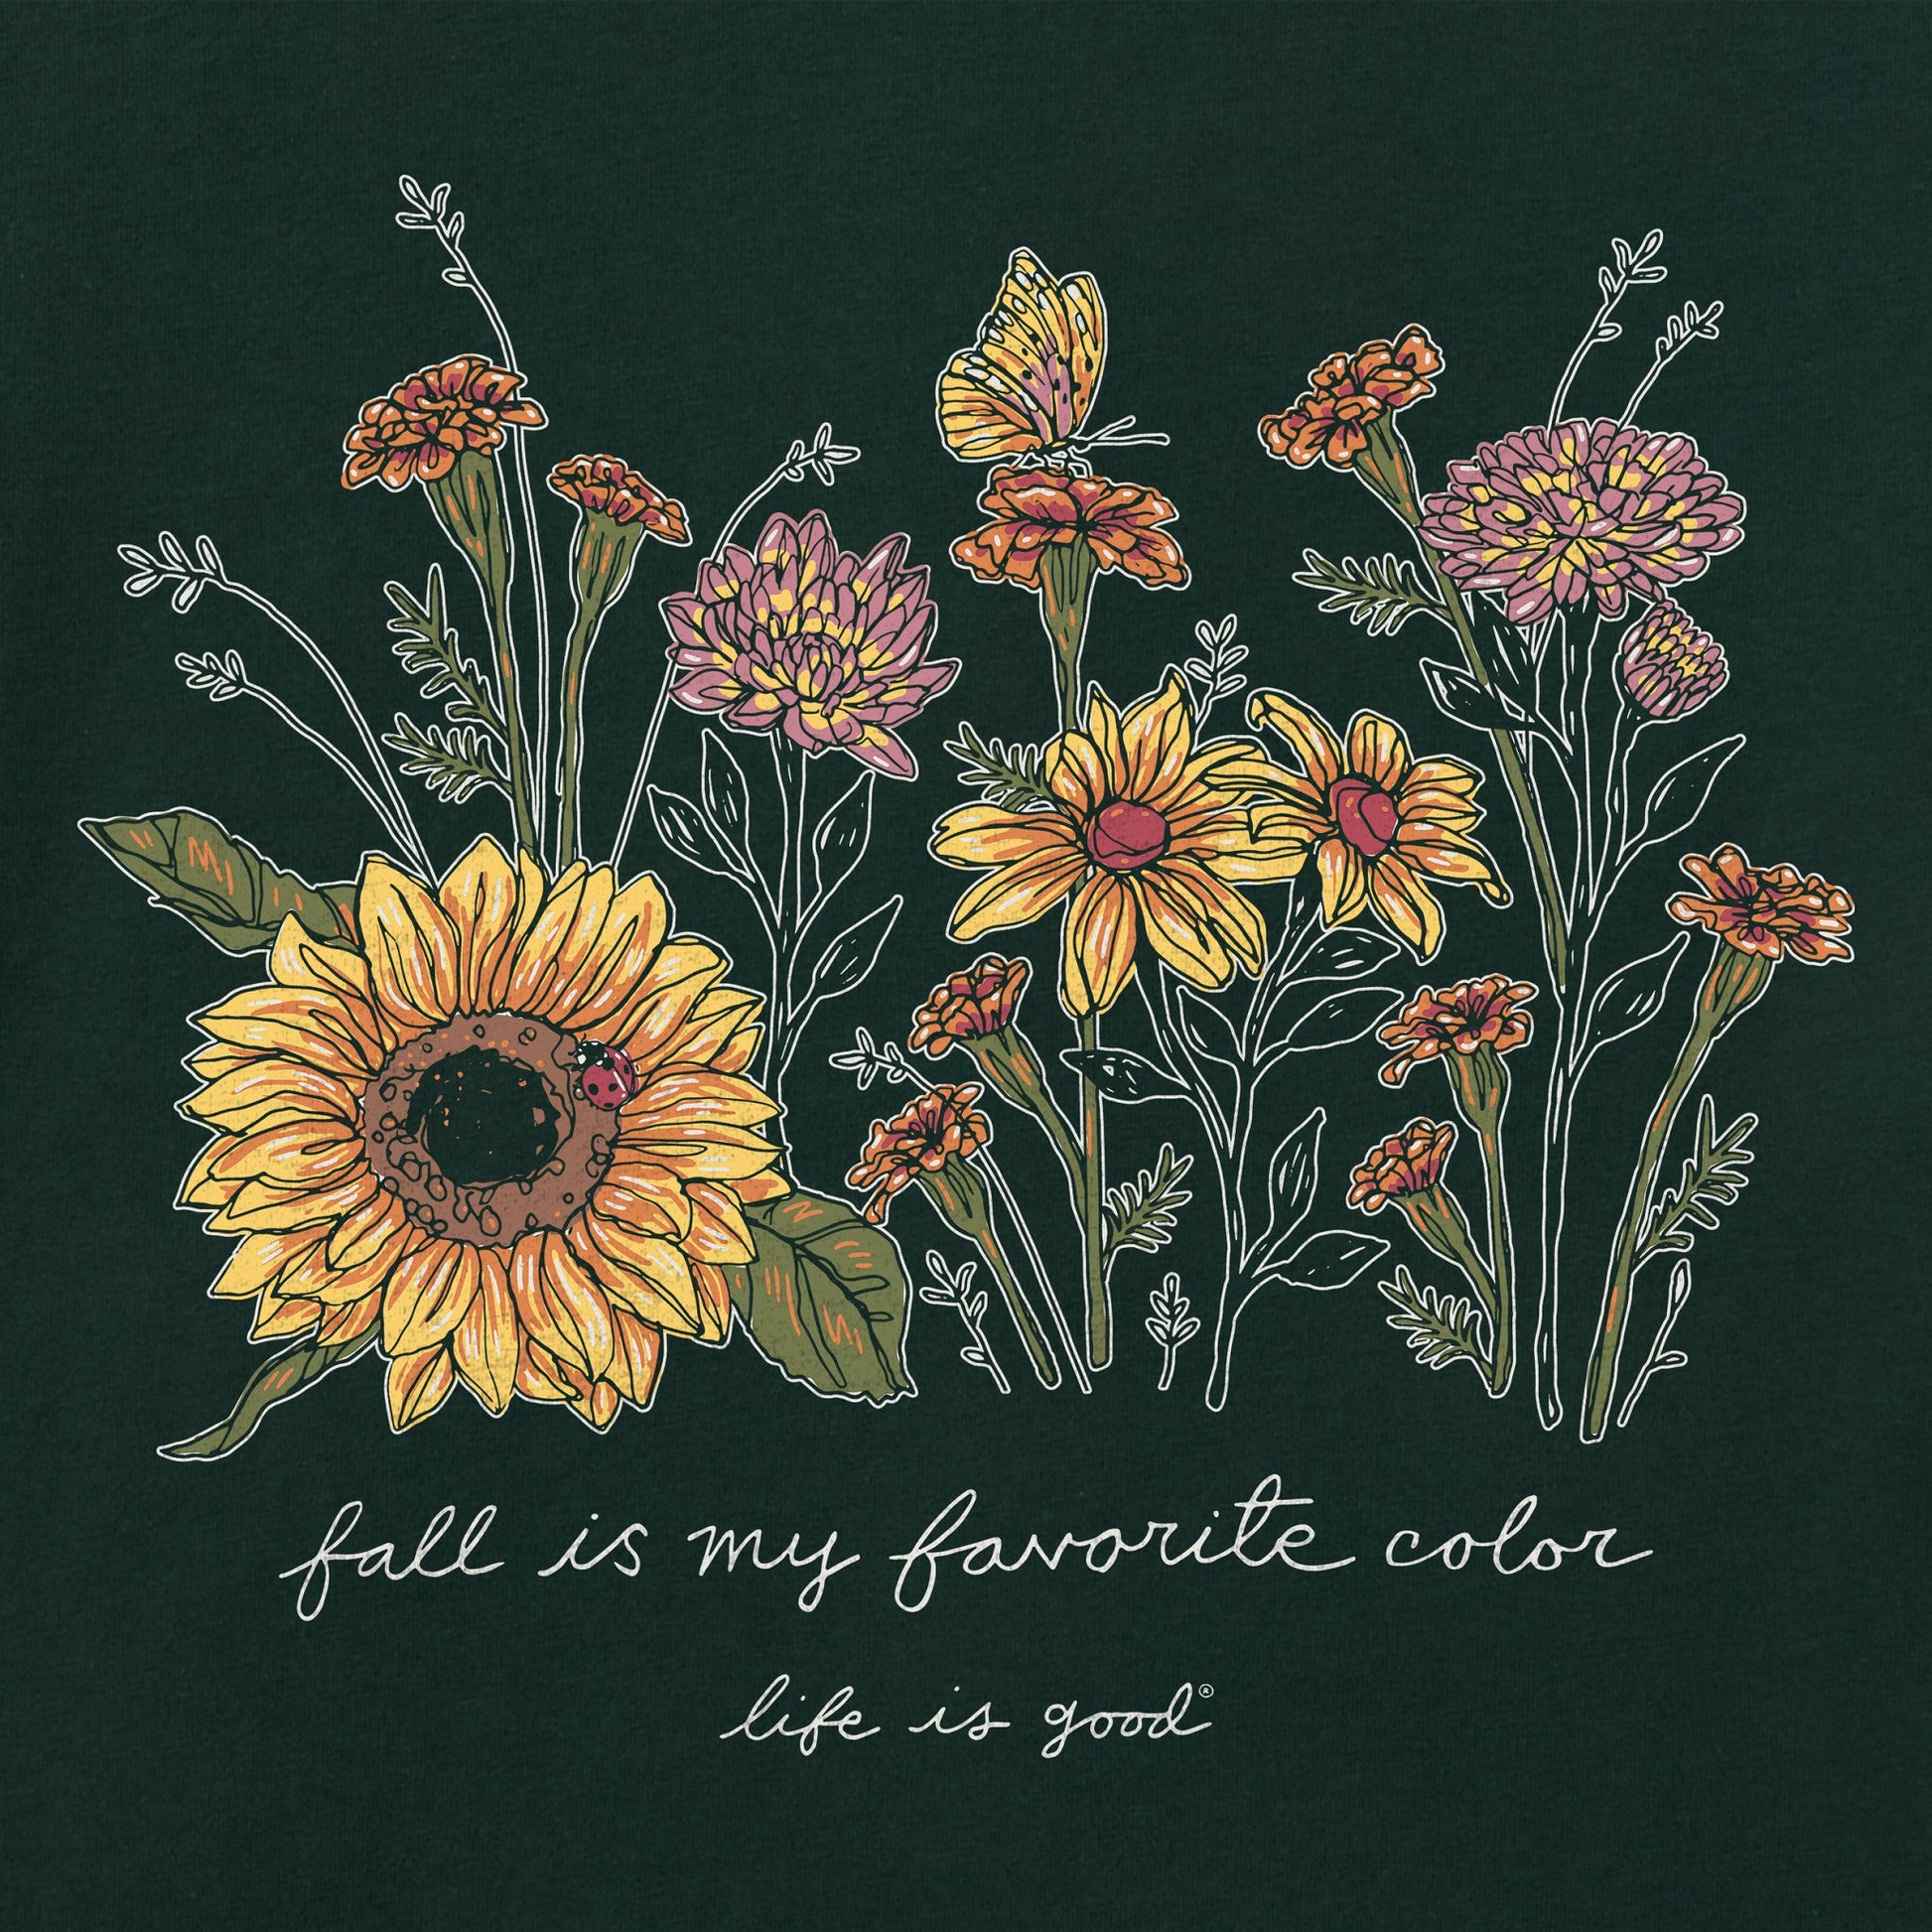 fall is my favorite color
life is good®